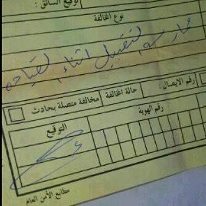 توقيع السائق :
نوع المخالفة
ممارسة التقبيل اثناء القيادة
رقم الايصال :
حالة المخالفة
مخالفة متصلة بحادث
رقم الهوية
التوقيع
مطابع الأمن العام